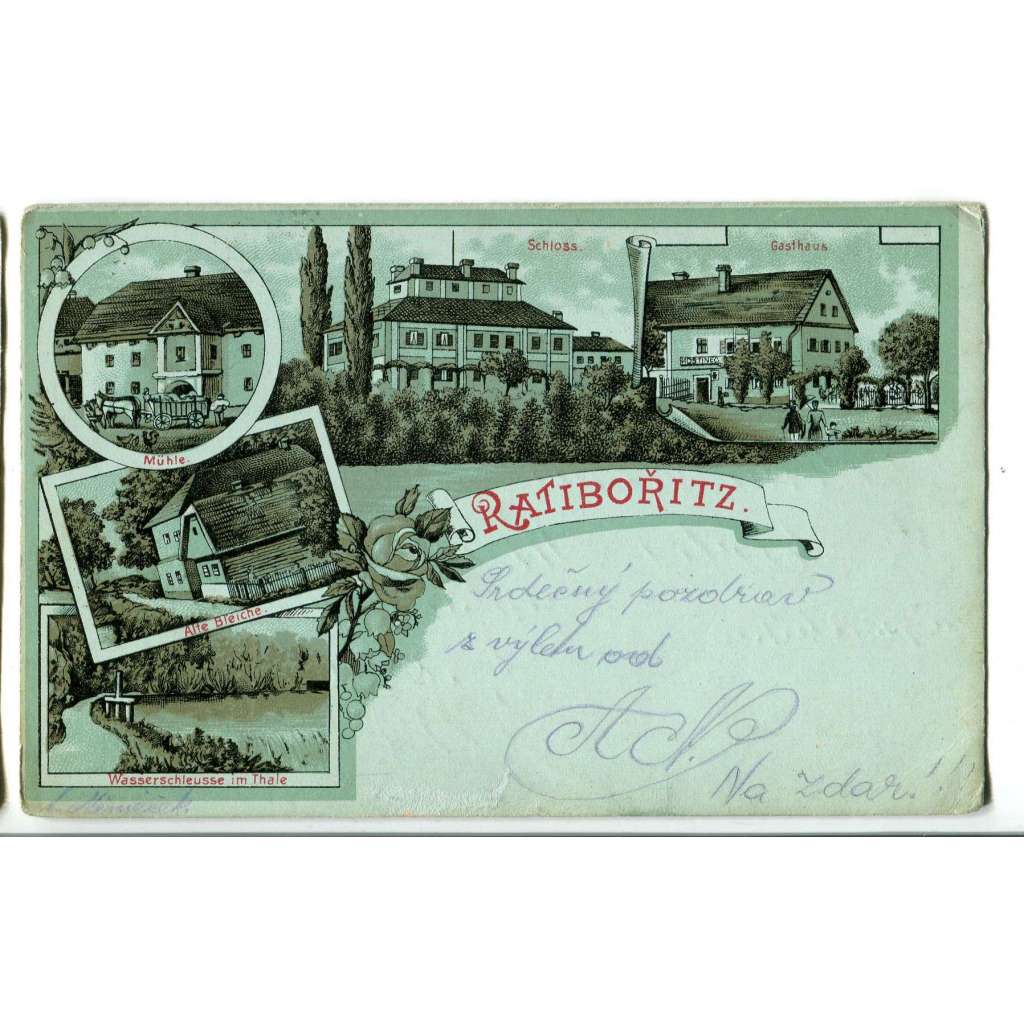 Schloss.
Gasthaus
HOSTINEC
Mühle.
RATIBOŘITZ.
Alte Bleiche.
Srdečný pozdrav
z výletu od
A. N.
Wasserschleusse im Thale
Na zdar!!!